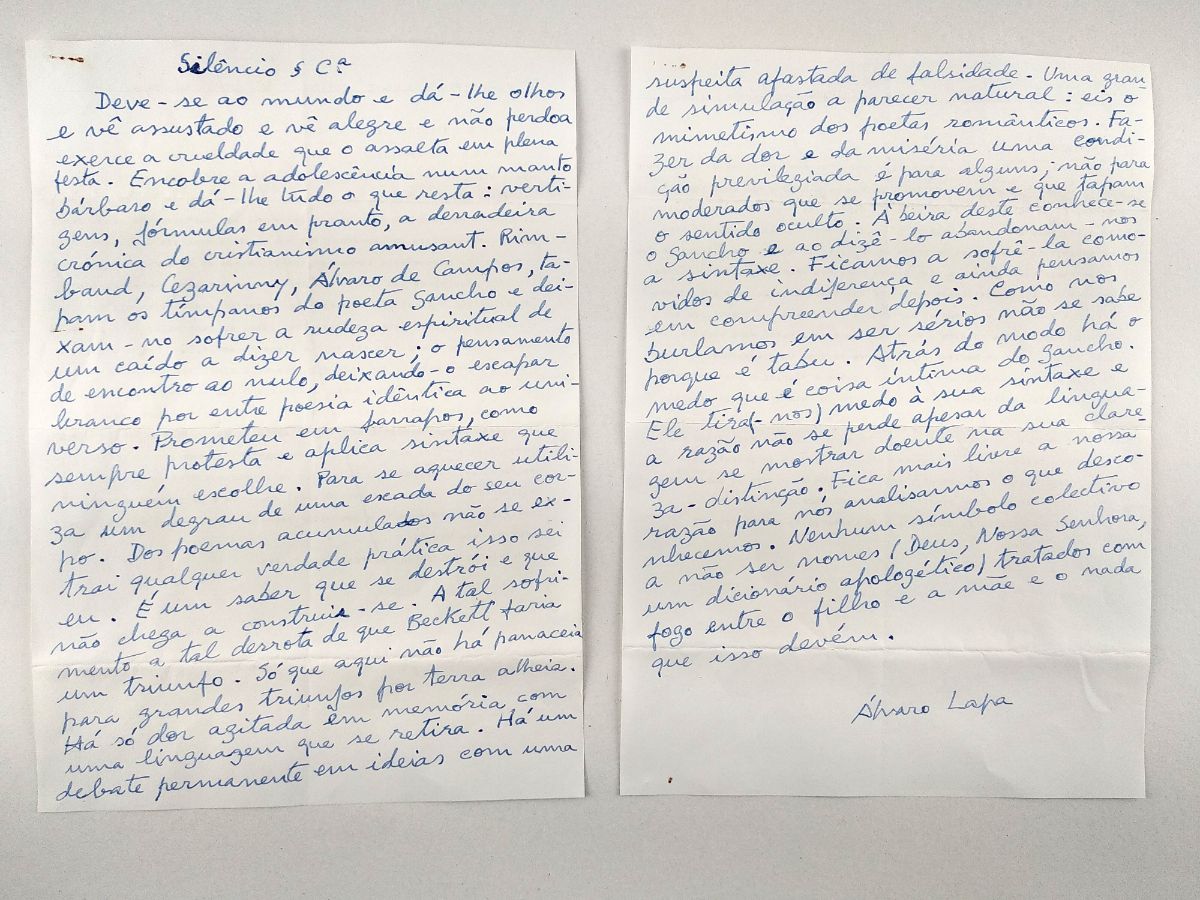 Silêncio § Cª
Deve-se ao mundo e dá-lhe olhos
e vê assustado e vê alegre e não perdoa
exerce a crueldade que o assalta em plena
festa. Encobre a adolescência num manto
bárbaro e dá-lhe tudo o que resta: verti-
gens, fórmulas em pranto, a derradeira
crónica do cristianismo amusant. Rim-
baud, Cezarinny, Álvaro de Campos, ta-
pam os tímpanos do poeta Gancho e dei-
xam-no sofrer a rudeza espiritual de
um caído a dizer nascer; o pensamento
de encontro ao nulo, deixando-o escapar
branco por entre poesia idêntica ao uni-
verso. Prometeu em farrapos, como
sempre protesta e aplica sintaxe que
ninguém escolhe. Para se aquecer utili-
za um degrau de uma escada do seu cor-
po. Dos poemas acumulados não se ex-
trai qualquer verdade prática isso sei
eu. É um saber que se destrói e que
não chega a construir-se. A tal sofri-
mento a tal derrota de que Beckett faria
um triunfo. Só que aqui não há panaceia
para grandes triunfos por terra alheia.
Há só dor agitada em memória, com
uma linguagem que se retira. Há um
debate permanente em ideias com uma
suspeita afastada de falsidade. Uma gran-
de simulação a parecer natural: eis o
mimetismo dos poetas românticos. Fa-
zer da dor e da miséria uma condi-
ção previlegiada é para alguns; não para
moderados que se promovem e que tapam
o sentido oculto. À beira deste conhece-se
o Gancho e ao dizê-lo abandonam-nos
a sintaxe. Ficamos a sofrê-la como-
vidos de indiferença e ainda pensamos
em compreender depois. Como nos
burlamos em ser sérios não se sabe
porque é tabu. Atrás do modo há o
medo que é coisa íntima do Gancho.
Ele tira(-nos) medo à sua sintaxe e
a razão não se perde apesar da lingua-
gem se mostrar doente na sua clare-
za-distinção. Fica mais livre a nossa
razão para nós analisarmos o que desco-
nhecemos. Nenhum símbolo colectivo
a não ser nomes (Deus, Nossa Senhora,
um dicionário apologético) tratados com
fogo entre o filho e a mãe e o nada
que isso devém.
Álvaro Lapa